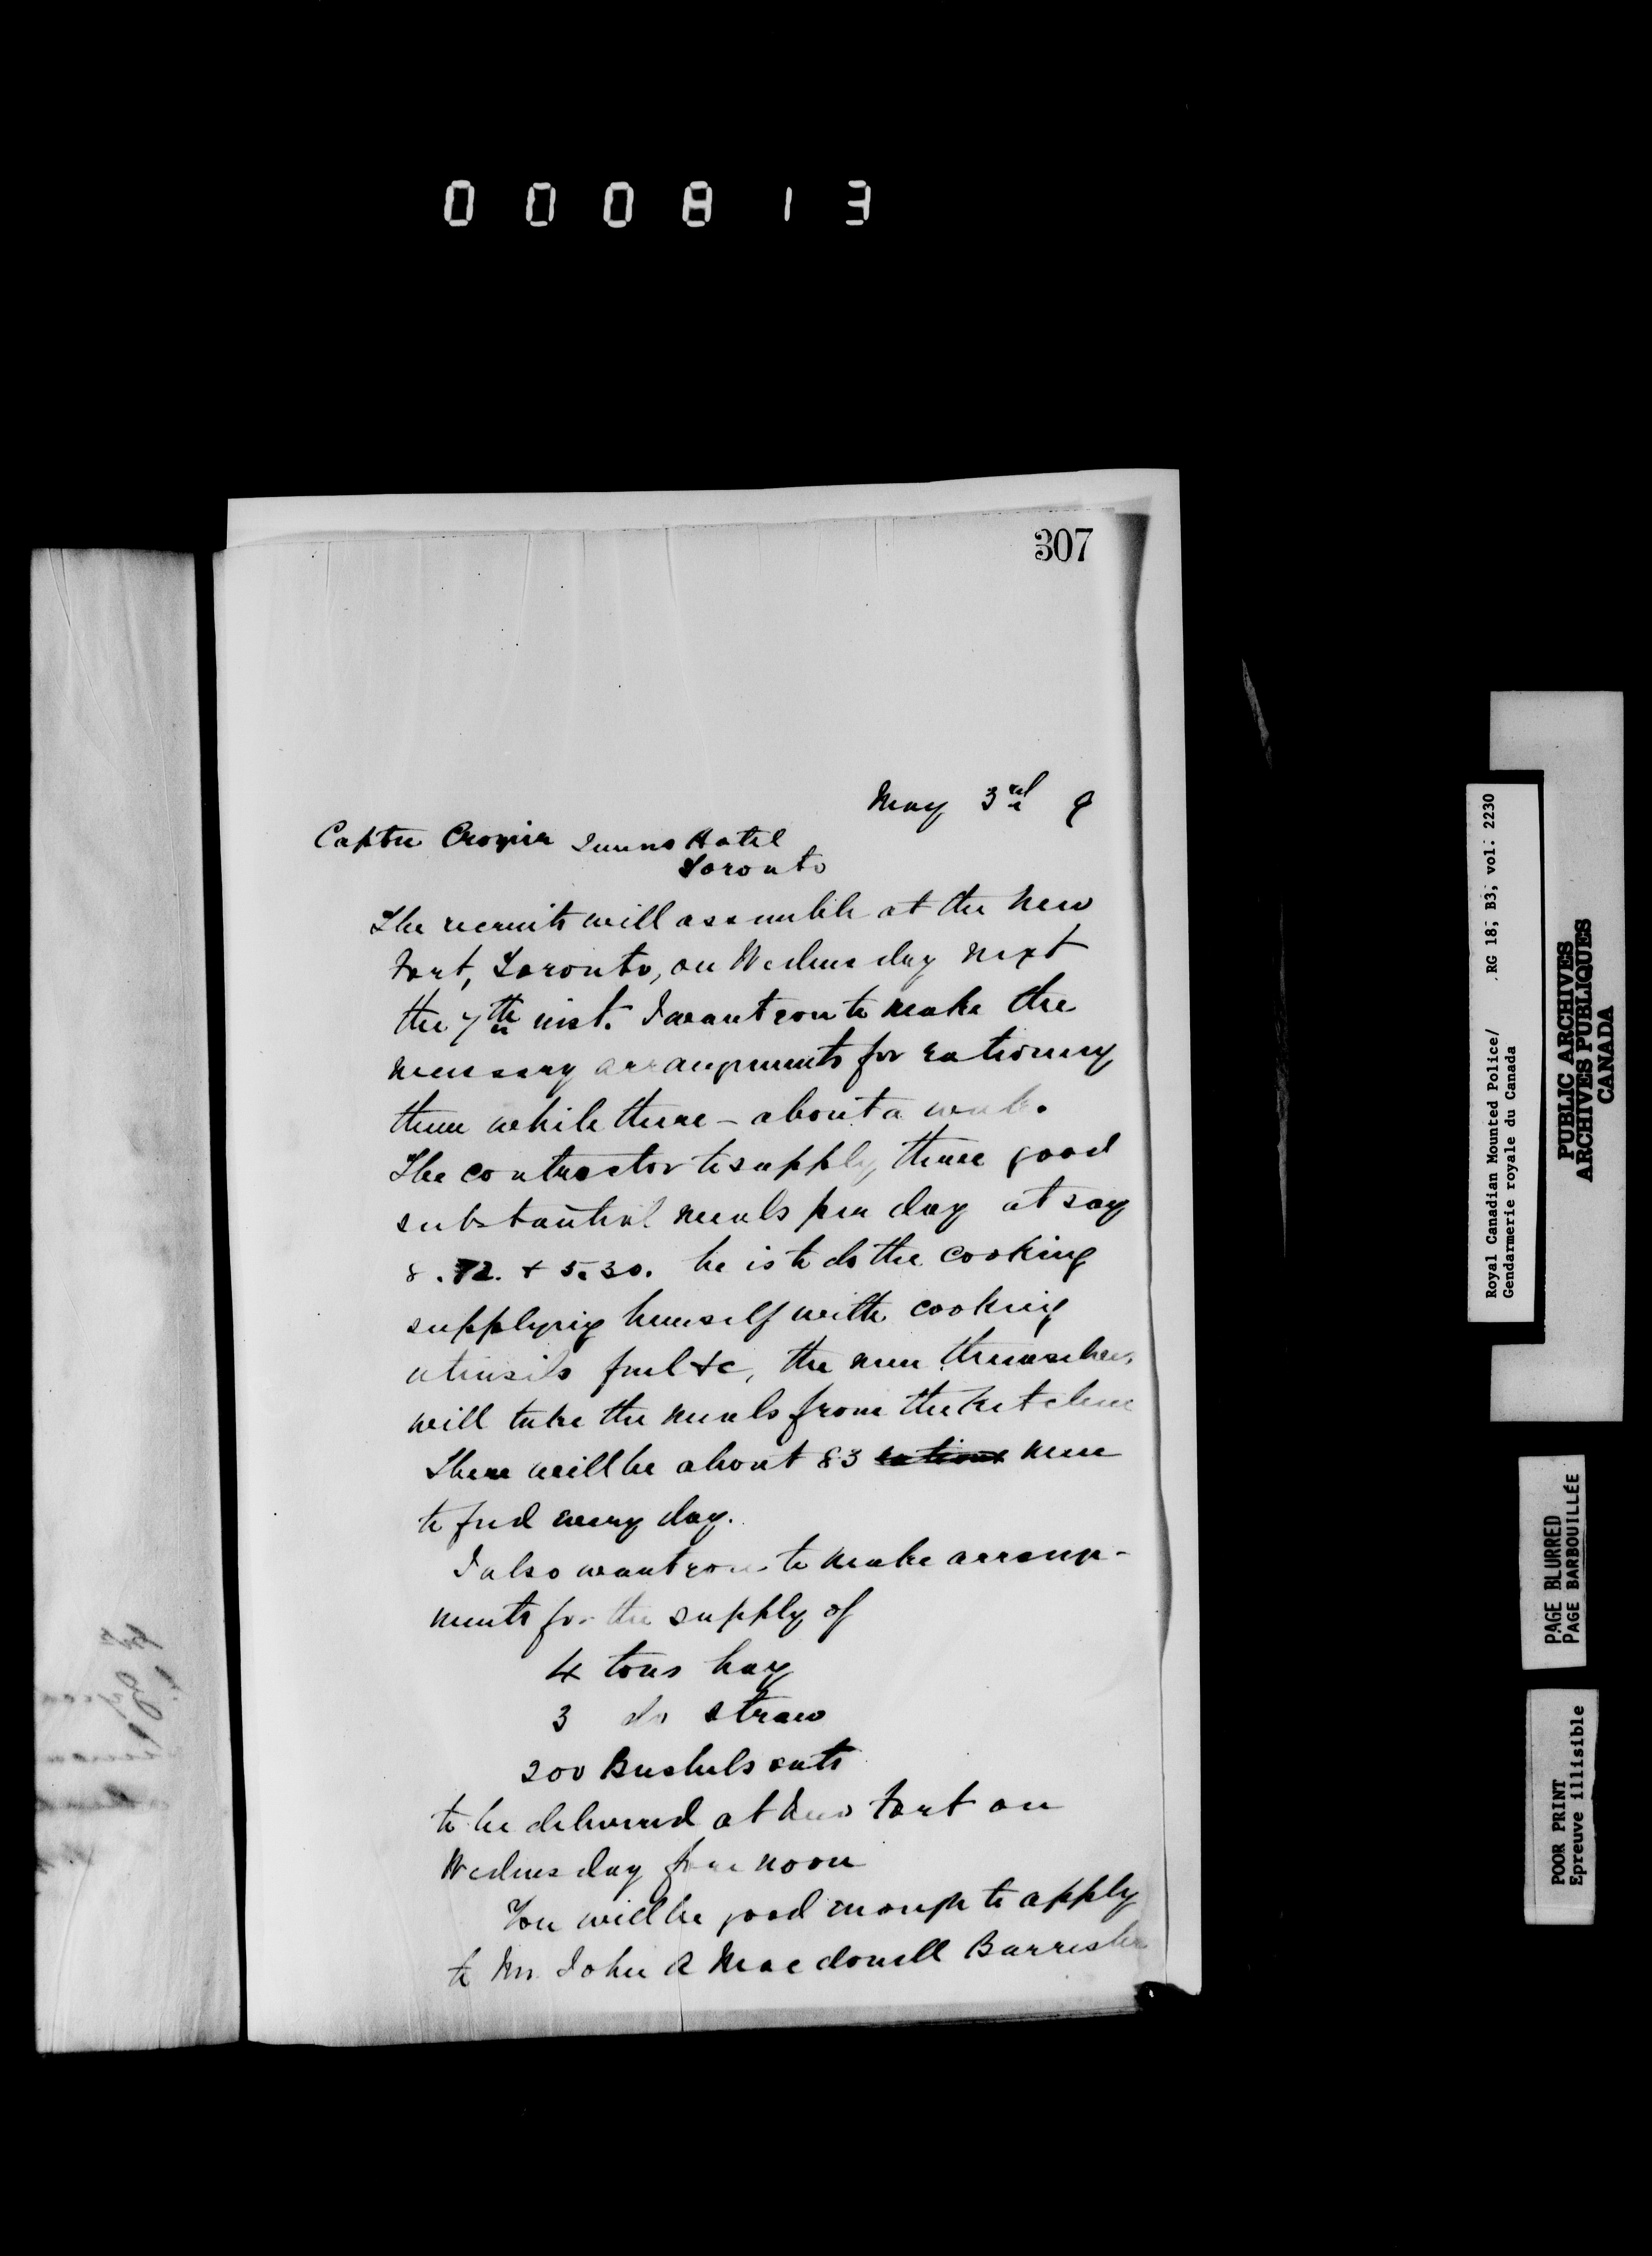 000813
307
May 3rd 9
Captn Crozier Queens Hotel
Toronto
The recruits will assemble at the New
Fort, Toronto, on Wednesday next
the 7th inst. I want you to make the
necessary arrangements for rationing
them while there - about a week.
The contractor to supply three good
substantial meals per day at say
8. 12. & 5.30. he is to do the cooking
supplying himself with cooking
utensils fuel &c, the men themselves,
will take the meals from the kitchen
There will be about 83 rations men
to feed every day.
I also want you to make arrange-
ments for the supply of
4 tons hay
3 do straw
200 Bushels oats
to be delivered at New Fort on
Wednesday forenoon
You will be good enough to apply
to Mr. John A Macdonell Barrister
Royal Canadian Mounted Police/ RG 18; B3; vol: 2230
Gendarmerie royale du Canada
PUBLIC ARCHIVES
ARCHIVES PUBLIQUES
CANADA
PAGE BLURRED
PAGE BARBOUILLÉE
POOR PRINT
Epreuve illisible